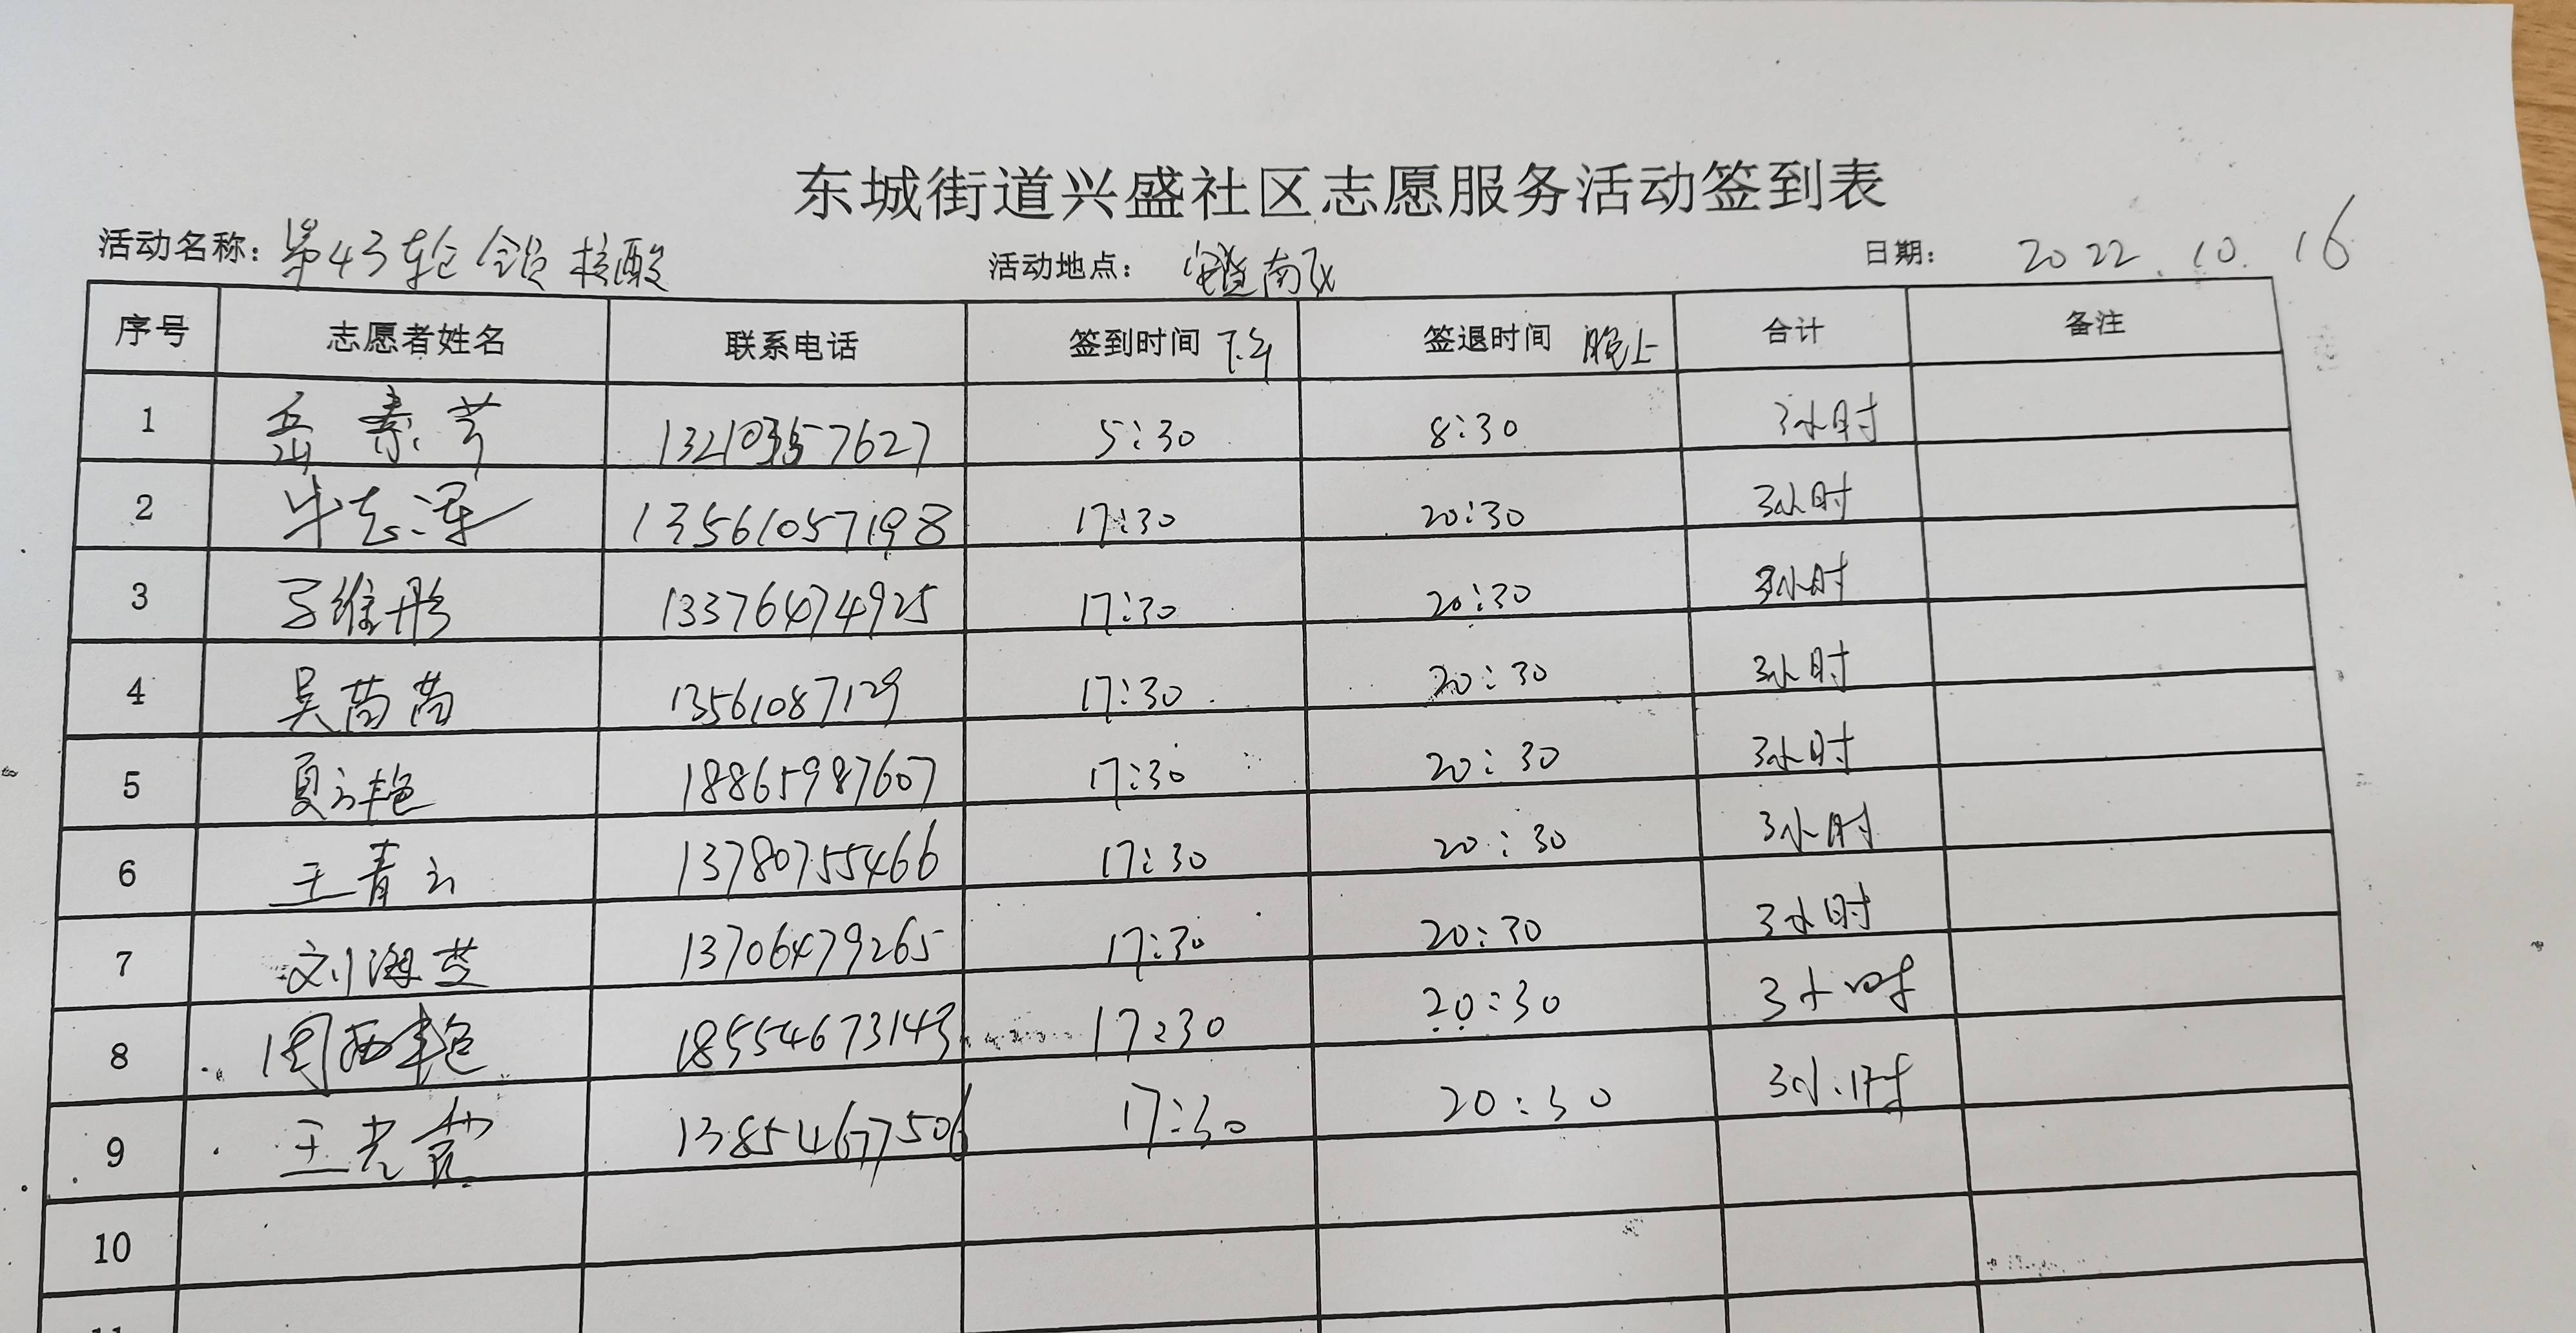 东城街道兴盛社区志愿服务活动签到表
活动名称：第43轮全员核酸 活动地点：南区 日期：2022.10.16
序号 志愿者姓名 联系电话 签到时间 下午 签退时间 晚上 合计 备注
1 岳素芹 132103557627 5:30 8:30 3小时
2 牛志军 13561057198 17:30 20:30 3小时
3 维彤 13376474925 17:30 20:30 3小时
4 吴苗苗 13561087129 17:30 20:30 3小时
5 夏艳 18865987607 17:30 20:30 3小时
6 王青云 13780755466 17:30 20:30 3小时
7 刘海芝 13706479265 17:30 20:30 3小时
8 周西艳 18554673143 17:30 20:30 3小时
9 王光 13854677506 17:30 20:30 3小时
10